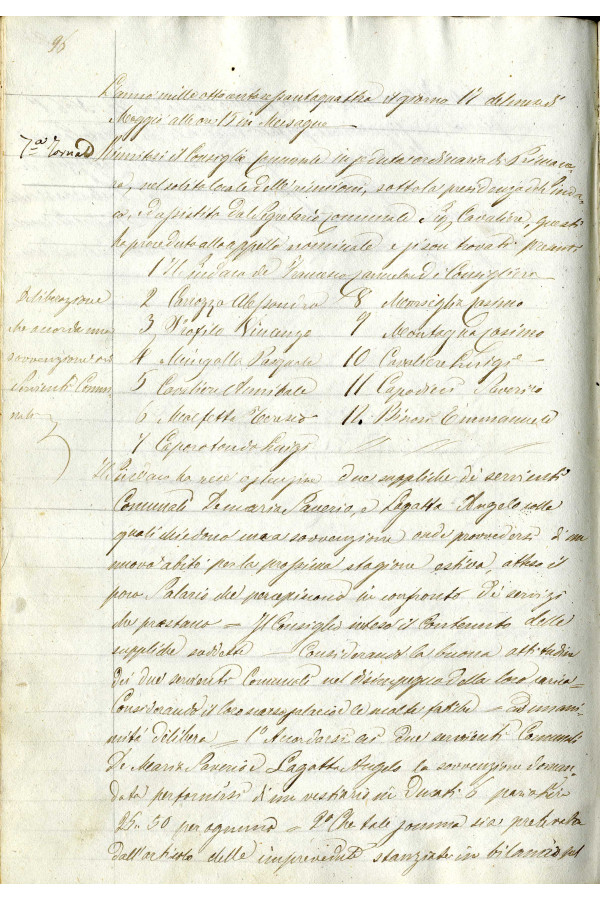 96
L'anno mille ottocento sessantaquattro il giorno 17 del mese di
Maggio alle ore 15 in Mesagne
7.a Tornata
Riunitosi il Consiglio Comunale in seduta ordinaria di Primave
ra, nel solito locale delle riunioni, sotto la presidenza del Sinda
co, ed assistito dal Segretario Comunale Cavaliere, questi
ha proceduto allo appello nominale e si son trovati presenti
1 Il Sindaco de Francesco Consigliere
Deliberazione
che accorda una
sovvenzione ai
Servienti Comu
nali
2 Canozza Alessandro 8 Marsiglia Cosimo
3 Profilo Vincenzo 9 Montagna Cosimo
4 Murgolla Pasquale 10 Cavaliere Luigi
5 Cavaliere Annibale 11 Capodieci Saverio
6 Malfetta Oronzo 12. Emmanuele
7 Caporotondo Luigi
Il Sindaco ha reso due suppliche di servienti
Comunali Demaria Saverio, e Lagatta Angelo colle
quali chiedono una sovvenzione onde provvedersi di un
nuovo abito per la prossima stagione estiva, atteso il
poco Salario che percepiscono in confronto dei servizi
che prestano = Il Consiglio inteso il contenuto delle
suppliche suddette = Considerando la buona attitudine
dei due servienti Comunali nel disimpegno della loro carica =
Considerando il loro scarso salario e le molte fatiche = Ad unani
mità delibera = 1.o Accordarsi ai due servienti Comunali
De Maria Saverio e Lagatta Angelo la sovvenzione doman
data per fornirsi di un vestiario in Ducati 6 pari a Lire
25.50 per ognuno = 2.o Che tale somma sia prelevata
dall'articolo delle imprevedute stanziate in bilancio pel